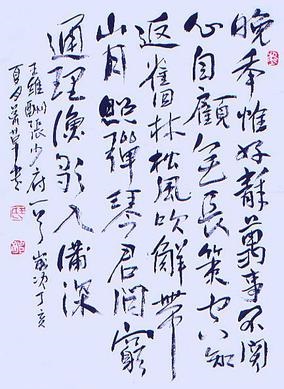 晚年惟好靜萬事不關
心自顧無長策空知
返舊林松風吹解帶
山月照彈琴君問窮
通理漁歌入浦深
王維酬張少府一首歲次丁亥
夏月